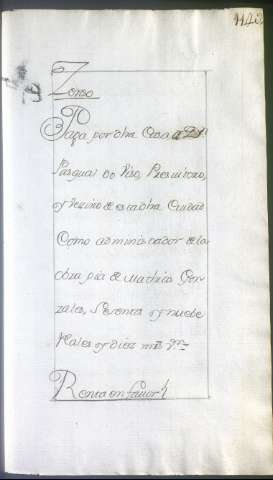 Zenso
Paga por dha Casa a Dn
Pasqual de Vao, Presvitero,
y Vezino de esta dha Ciudad
Como administrador de la
obra pia de Mathias Gon
zales, Setenta y nuebe
Reales y Diez ms Vn
Renta en favor